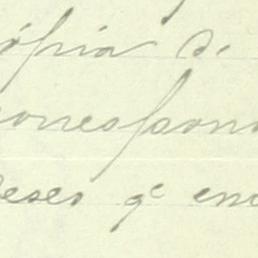 ópia di
correspon
deses qe en